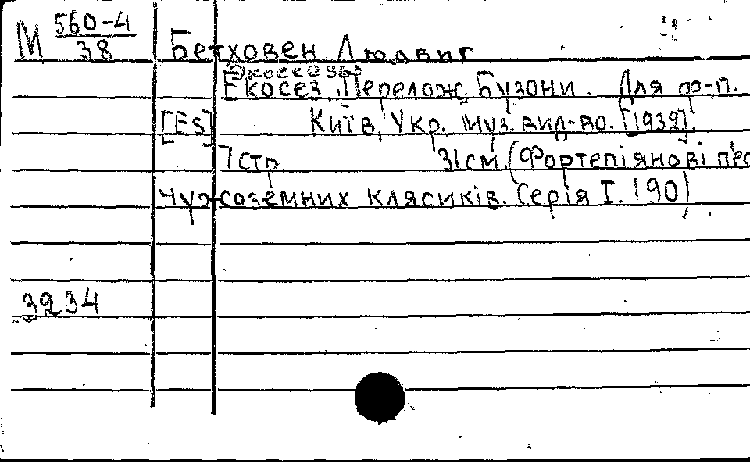 М 560-4
38
Бетховен Людвиг
Экоссезы
Екосез. Перелож. Бузони. Для ф-п.
[Es] Київ, Укр. муз. вид-во. [1939].
7 стр 31 см. (Фортепіянові п'єс
чужоземних клясиків. Серія I. 190)
3234